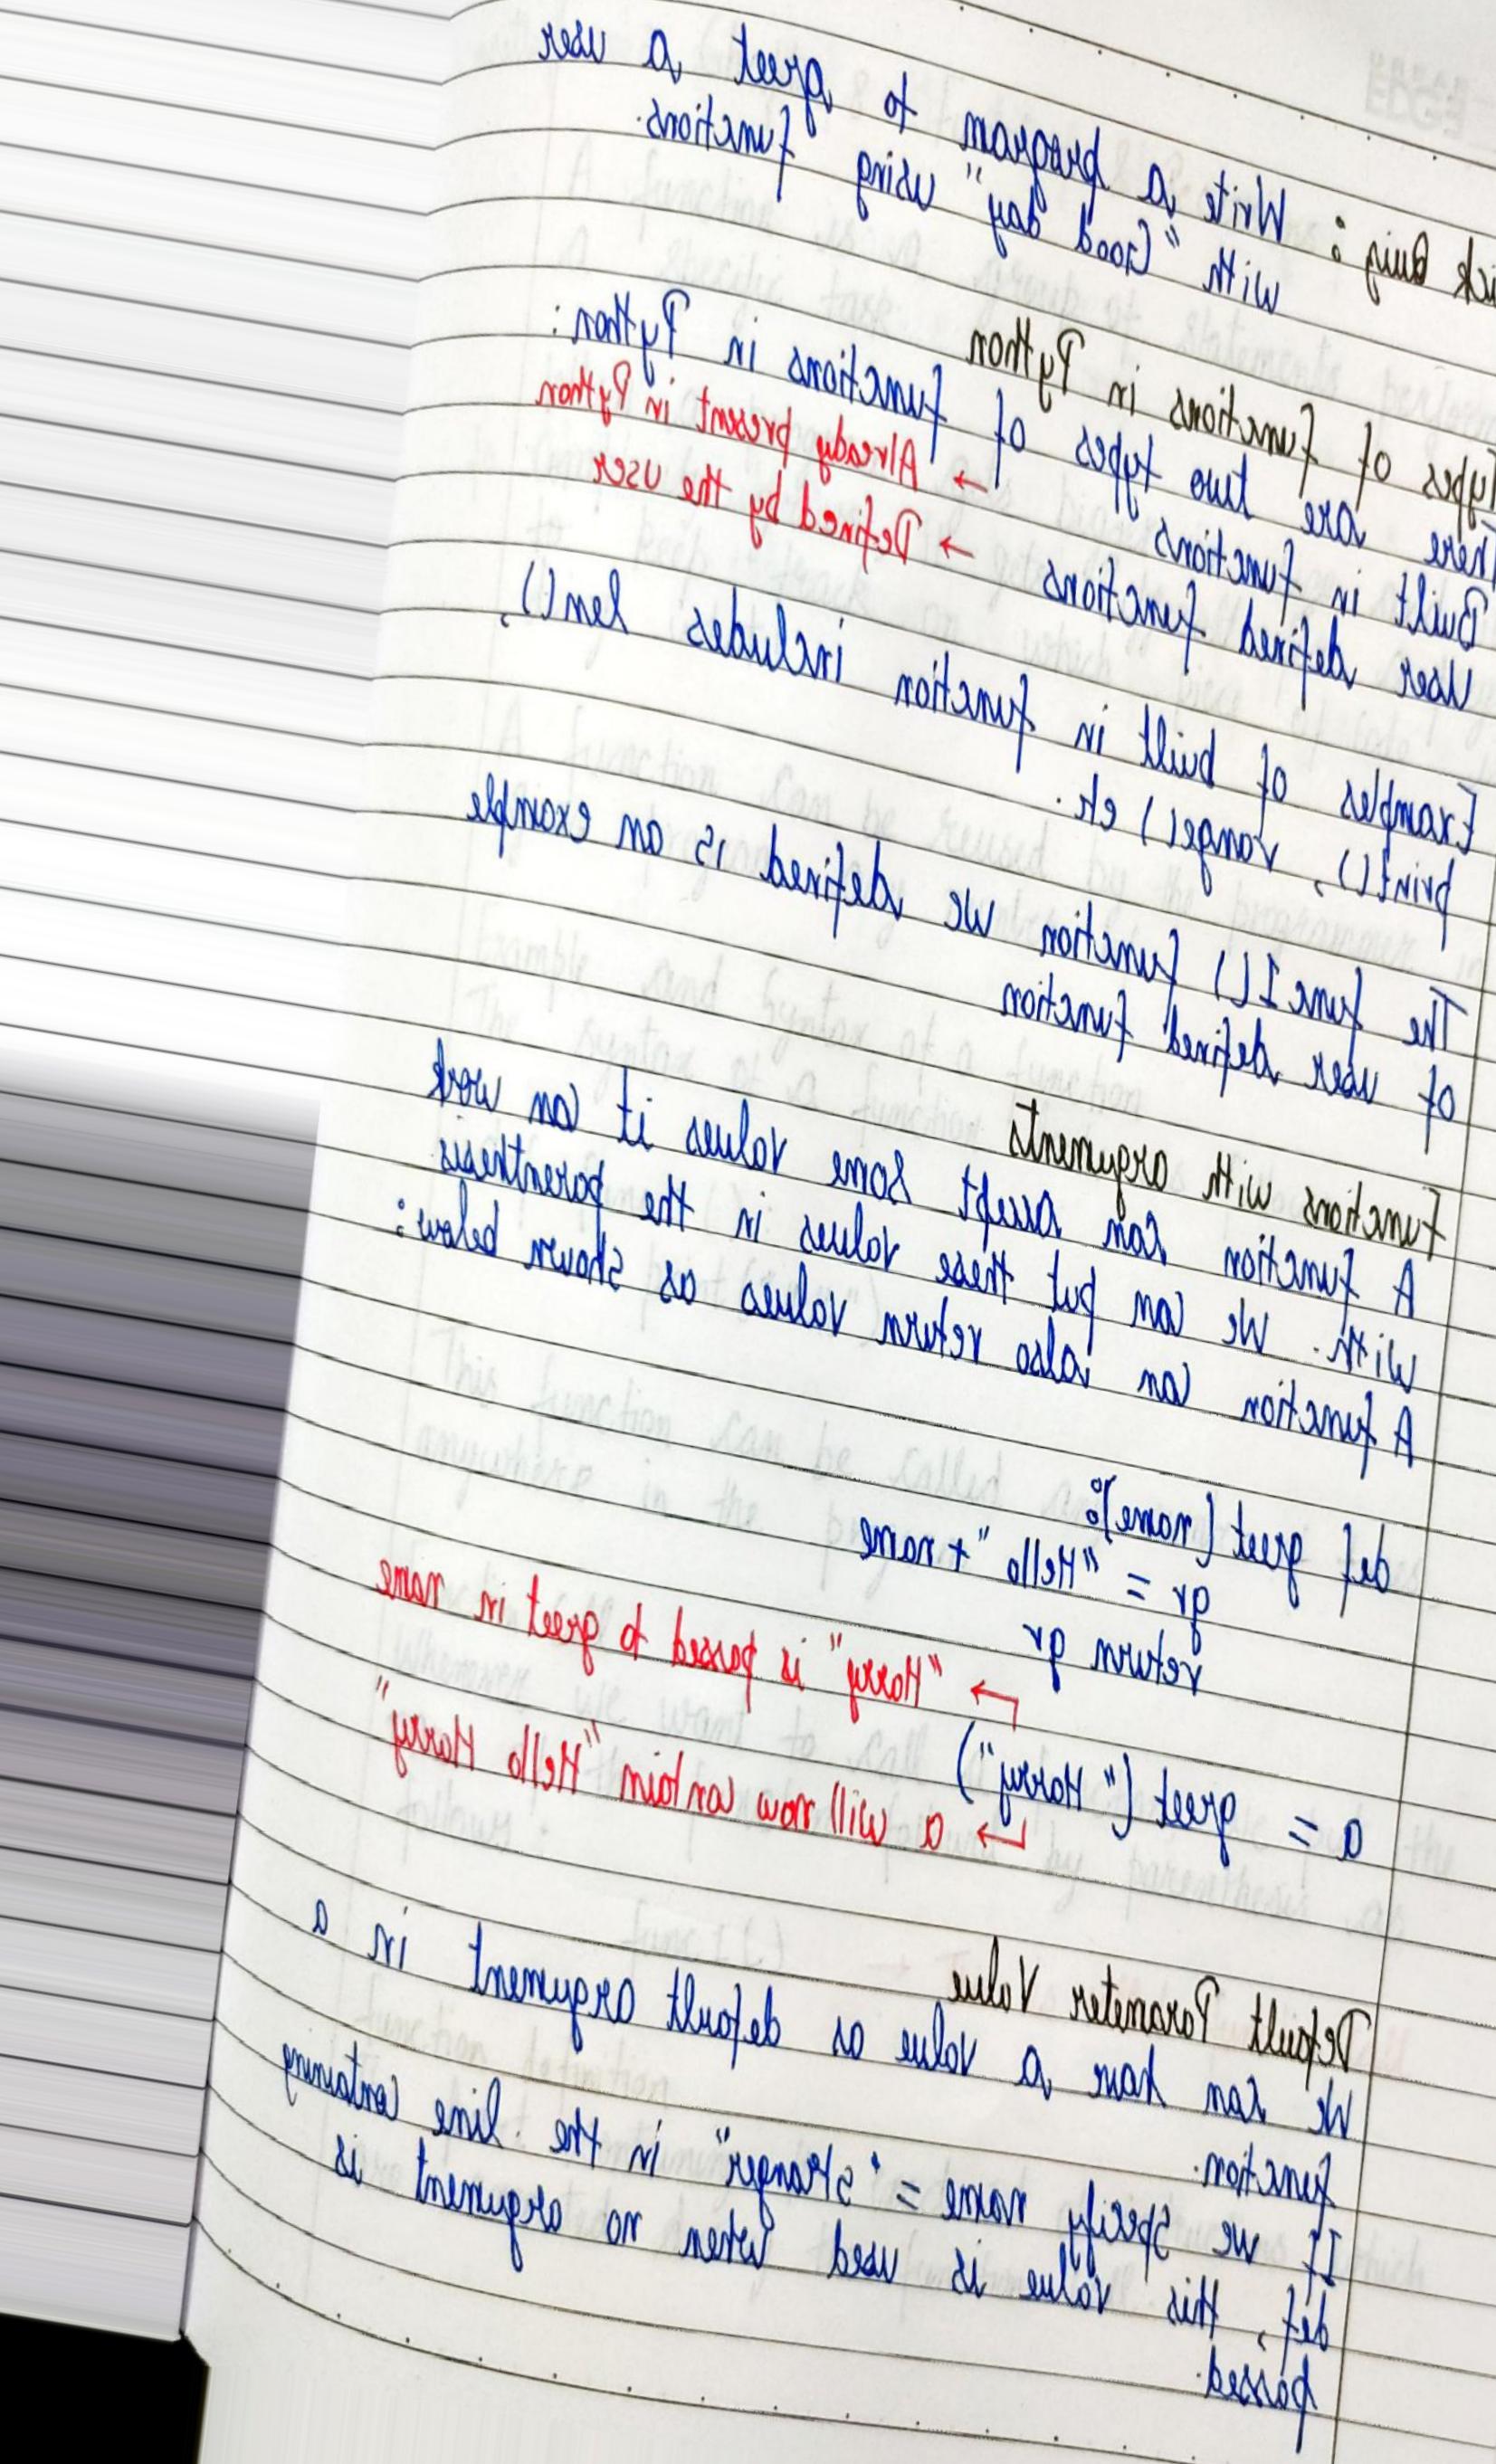 ick Quiz : Write a program to greet a user
with "Good day" using functions.
Types of functions in Python
There are two types of functions in Python :
Built in functions → Already present in Python
User defined functions → Defined by the user
Examples of built in function includes len(),
print(), range() etc.
The func1() function we defined is an example
of user defined function
Functions with arguments
A function can accept some values it can work
with. We can put these values in the parenthesis
A function can also return values as shown below :
def greet (name):
gr = "Hello" + name
return gr
↳ "Harry" is passed to greet in name
a = greet ("Harry")
↳ a will now contain "Hello Harry"
Default Parameter Value
We can have a value as default argument in a
function.
If we specify name = "stranger" in the line containing
def, this value is used when no argument is
passed.